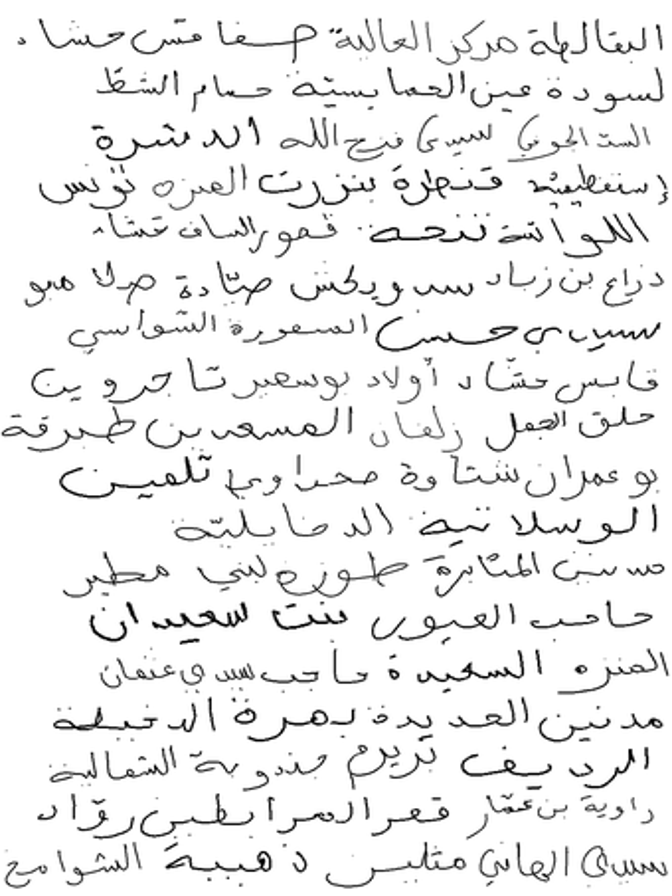 البقالطة مركز العالية صفاقس حشاد
لسودة عين الحمايسيّة حمام الشطّ
الست الجوفي سيدي فرج الله الدشرة
قنطرة بنزرت المنزه تونس
اللواتة ننحه قصور الساف حشاد
ذراع بن زياد سد ويكش صيّادة
سيدي حسن الصفورة الشواشي
قابس حشّاد أولاد بوسمير تاجروين
حلق الجمل زلفان المسعدين طبرقة
بو عمران شتاوة صحراوي تلمين
الوسلاتية الدخايليّة
المثابرة طورزه لبني مطير
حاجب العيون بنت سعيدان
المنزه السعيدة حاجب سيدي عثمان
مدنين الجديدة بهرة الدخيلة
الرديف تريرم جندوبة الشمالية
زاوية بن عمّار قصر المرابطين روّاد
سيدي الهاني مثليس ذهيبة الشوامخ